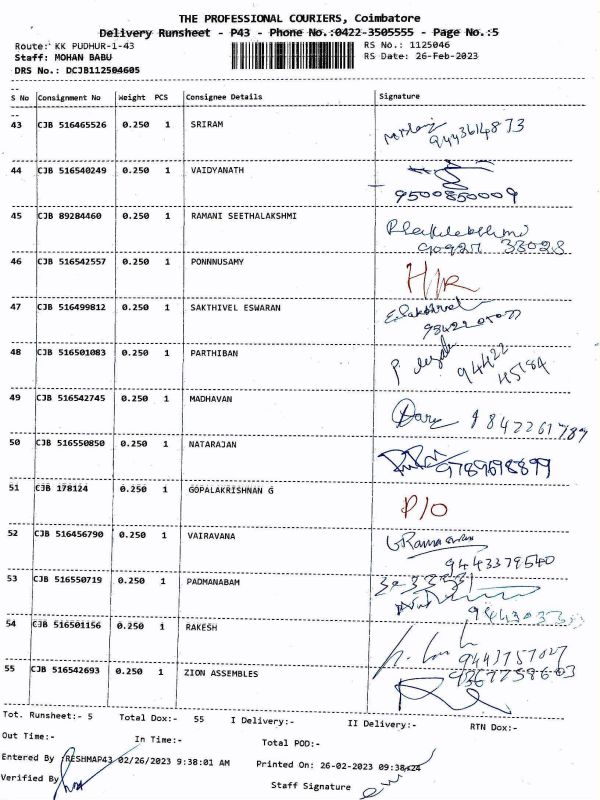 THE PROFESSIONAL COURIERS, Coimbatore
Delivery Runsheet - P43 - Phone No.:0422-3505555 - Page No.:5
Route: KK PUDHUR-1-43 RS No.: 1125046
Staff: MOHAN BABU RS Date: 26-Feb-2023
DRS No.: DCJB112504605
S No Consignment No Weight PCS Consignee Details Signature
43 CJB 516465526 0.250 1 SRIRAM
9443614873
44 CJB 516540249 0.250 1 VAIDYANATH
9500850009
45 CJB 89284460 0.250 1 RAMANI SEETHALAKSHMI
90927 33028
46 CJB 516542557 0.250 1 PONNNUSAMY
H/R
47 CJB 516499812 0.250 1 SAKTHIVEL ESWARAN
E.Sakthivel
48 CJB 516501083 0.250 1 PARTHIBAN
94422
45184
49 CJB 516542745 0.250 1 MADHAVAN
50 CJB 516550850 0.250 1 NATARAJAN
9789698899
51 CJB 178124 0.250 1 GOPALAKRISHNAN G
P/O
52 CJB 516456790 0.250 1 VAIRAVANA
9443379540
53 CJB 516550719 0.250 1 PADMANABAM
54 CJB 516501156 0.250 1 RAKESH
9443757027
55 CJB 516542693 0.250 1 ZION ASSEMBLES
9367758603
Tot. Runsheet:- 5 Total Dox:- 55 I Delivery:- II Delivery:- RTN Dox:-
Out Time:- In Time:- Total POD:-
Entered By :RESHMAP43 02/26/2023 9:38:01 AM Printed On: 26-02-2023 09:38:24
Verified By Staff Signature